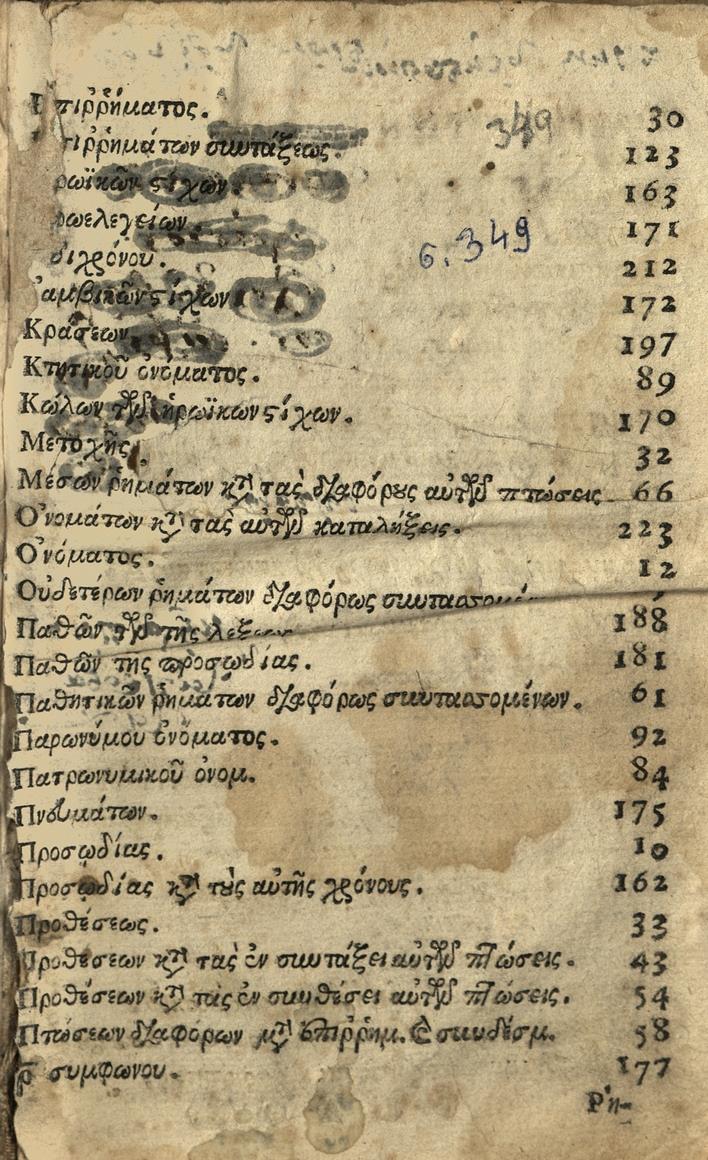 349
6.349
Ἐπιῤῥήματος. 30
Ἐπιῤῥημάτων συντάξεως. 123
ρωϊκῶν στίχων. 163
ρωελεγείων. 171
διχρόνου. 212
Ἰαμβικῶν στίχων 172
Κράσεων 197
Κτητικοῦ ὀνόματος. 89
Κώλων τῶν ἡρωϊκων στίχων. 170
Μετοχῆς. 32
Μέσων ῥημάτων κατὰ τὰς διαφόρους αὐτῶν πτώσεις 66
Ὀνομάτων κατὰ τὰς αὐτῶν καταλήξεις. 223
Ὀνόματος. 12
Οὐδετέρων ῥημάτων διαφόρως
Παθῶν τῶν τῆς λέξεων 188
Παθῶν της προσωδίας. 181
Παθητικῶν ῥημάτων διαφόρως συντασσομένων. 61
Παρωνύμου ὀνόματος. 92
Πατρωνυμικοῦ ὀνομ. 84
Πνευμάτων. 175
Προσῳδίας. 10
Προσῳδίας κατὰ τοὺς αὐτῆς χρόνους. 162
Προθέσεως. 33
Προθέσεων κατὰ τὰς ἐν συντάξει αὐτῶν πτώσεις. 43
Προθέσεων κατὰ τὰς ἐν συνθέσει αὐτῶν πτώσεις. 54
Πτώσεων διαφορων μετὰ ἐπιῤῥημ. καὶ συνδέσμ. 58
ρ συμφωνου. 177
Ῥη-